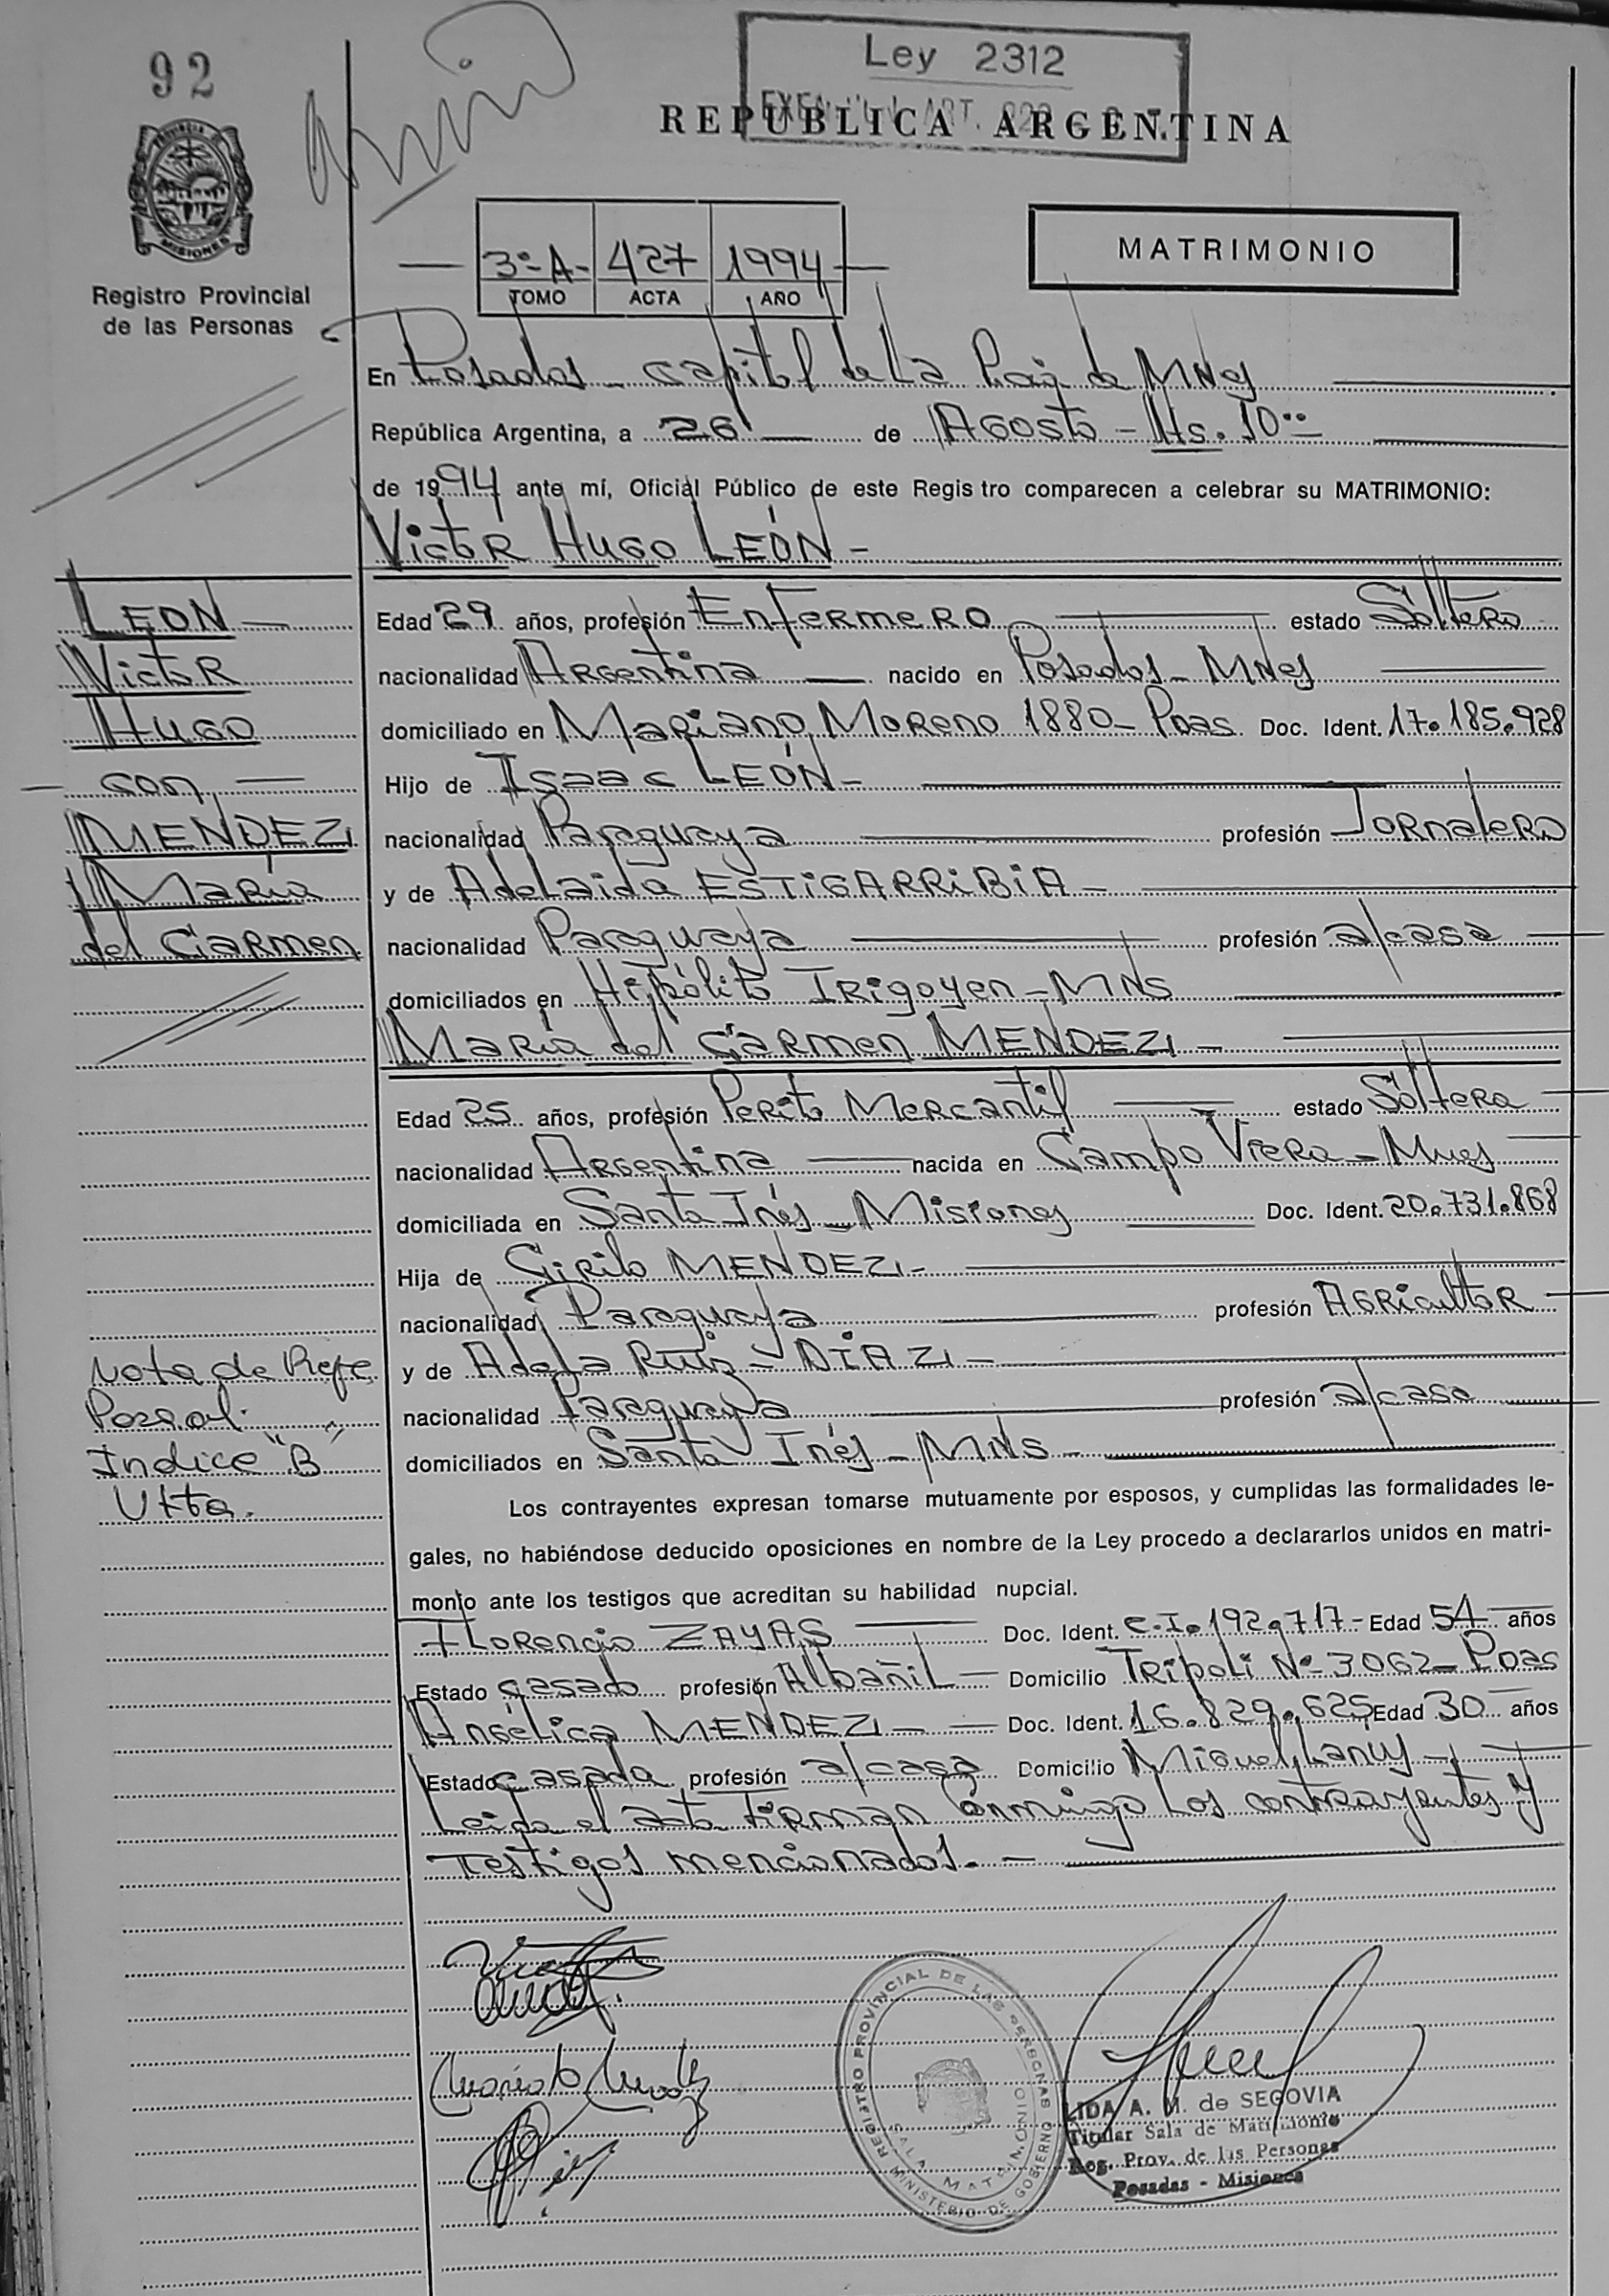 92
Ley 2312
REPUBLICA ARGENTINA
PROVINCIA DE
MISIONES
Registro Provincial
de las Personas
3º-A- 427 1994
TOMO ACTA AÑO
MATRIMONIO
En Posadas - capital de La Pcia de MNes
República Argentina, a 26 de Agosto - Hs. 10ºº
de 1994 ante mí, Oficial Público de este Regis tro comparecen a celebrar su MATRIMONIO:
Victor Hugo LEÓN -
LEON
Victor
Hugo
con
MENDEZ
María
del Carmen
Edad 29 años, profesión Enfermero estado Soltero
nacionalidad Argentina nacido en Posadas - MNes
domiciliado en Mariano Moreno 1880 - Pdas. Doc. Ident. 17.185.928
Hijo de Isaac LEÓN -
nacionalidad Paraguaya profesión Jornalero
y de Adelaida ESTIGARRIBIA -
nacionalidad Paraguaya profesión a/casa
domiciliados en Hipólito Irigoyen - MNS
María del Carmen MENDEZ -
Edad 25 años, profesión Perito Mercantil estado Soltera
nacionalidad Argentina nacida en Campo Viera - Mnes
domiciliada en Santa Inés - Misiones Doc. Ident. 20.731.868
Hija de Cirilo MENDEZ -
nacionalidad Paraguaya profesión Agricultor
y de Adela Ruiz - DIAZ -
nacionalidad Paraguaya profesión a/casa
domiciliados en Santa Inés - MNS -
Nota de Refe
Indice "B"
Los contrayentes expresan tomarse mutuamente por esposos, y cumplidas las formalidades le-
gales, no habiéndose deducido oposiciones en nombre de la Ley procedo a declararlos unidos en matri-
monio ante los testigos que acreditan su habilidad nupcial.
Florencio ZAYAS Doc. Ident. C.I. 192.717 - Edad 54 años
Estado casado profesión Albañil - Domicilio Tripoli Nº 3062 - Pdas
Angélica MENDEZ - Doc. Ident. 16.829.625 Edad 30 años
Estado casada profesión a/casa Domicilio Miguel Lanus -
Leida el acta firman conmigo los contrayentes y
testigos mencionados. -
REGISTRO PROVINCIAL DE LAS PERSONAS
SALA MATRIMONIO
MINISTERIO DE GOBIERNO
LIDA A. M. de SEGOVIA
Titular Sala de Matrimonio
Reg. Prov. de las Personas
Posadas - Misiones